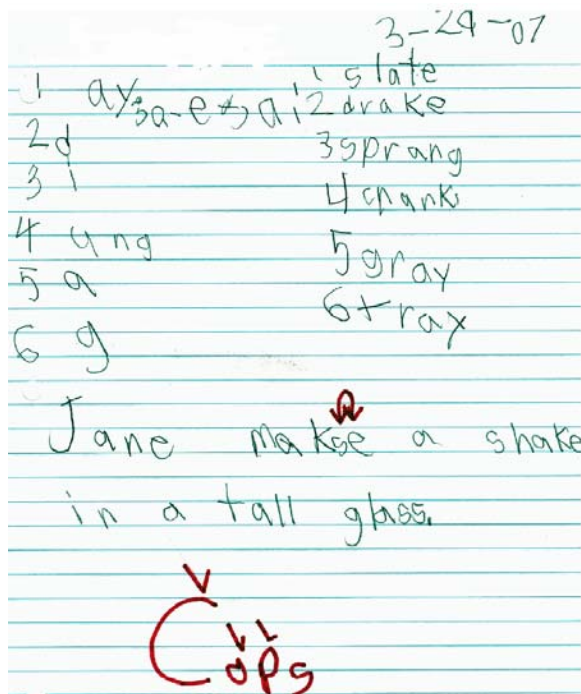 3-29-07
1 ay, a-e, ai
2 d
3 i
4 ung
5 a
6 g
1 slate
2 drake
3 sprang
4 cpank
5 gray
6 tray
Jane makse a shake
in a tall glass.
Cops